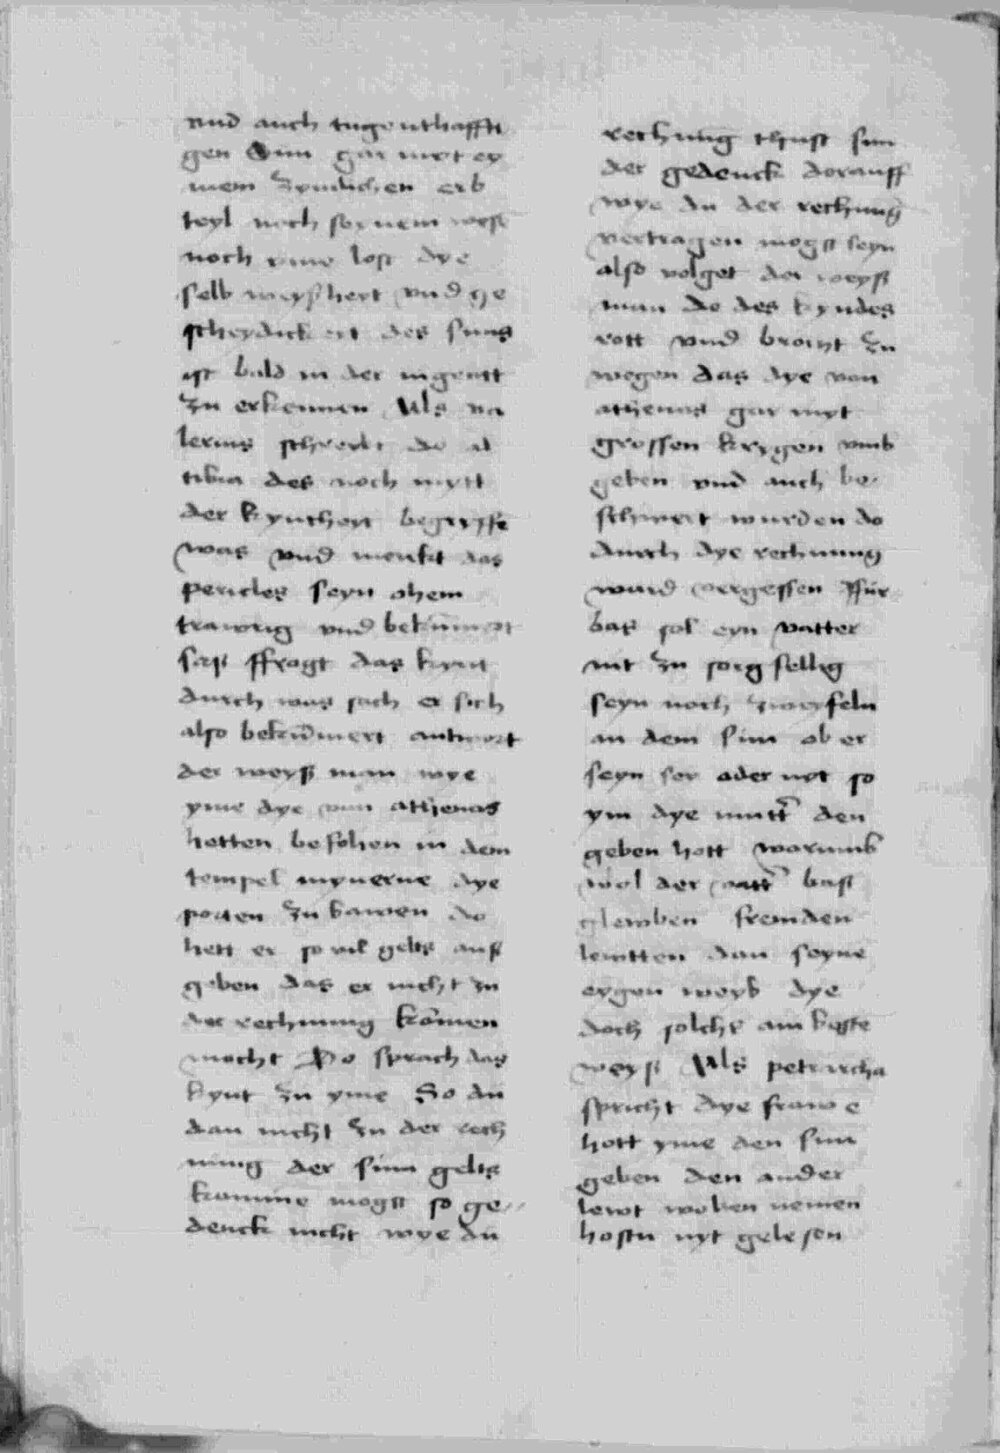 vnd auch tugenthaffti
gen Sun gar nit ey
nem zymlichen erb
teyl noch seynem
noch yme lost dye
selb weyßheyt vnd ge
scheydickeit des suns
ist bald in der iugentt
zu erkennen Als va
lerius schreibt do al
des noch mytt
der kyntheyt begryffe
was vnd merckt das
pericles seyn ohem
trawrig vnd bekummert
saß ffrogt das kynt
durch was sach er sich
also bekummert antwort
der weyß man wye
yme dye von athenas
hetten befolhen in dem
tempel mynerue dye
porten zu bawen do
hett er so vil gelts auß
geben das er nicht zu
der rechnung komen
mocht Do sprach das
kynt zu yme So du
dan nicht zu der rech
nung der sum gelts
komme mogst so ge
denck nicht wye du
rechnung thust sun
der gedenck dorauff
wye du der rechnung
vertragen mogst seyn
also volget der weyß
man do des kyndes
rott vnd brocht zu
wegen das dye von
athenas gar myt
grossen krygen vmb
geben vnd auch be
schwert wurden do
durch dye rechnung
ward vergessen Ffur
bas sol eyn vatter
nit zu sorgfellig
seyn noch zweyfeln
an dem sun ob er
seyn sey oder nyt so
ym dye mutter den
geben hott warumb
wol der vatter baß
glewben fremden
lewtten dan seyne
eygen weyb dye
doch solchs am beste
weyß Als petrarcha
spricht dye frawe
hott yme den sun
geben den ander
lewt wolten nemen
hostu nyt gelesen